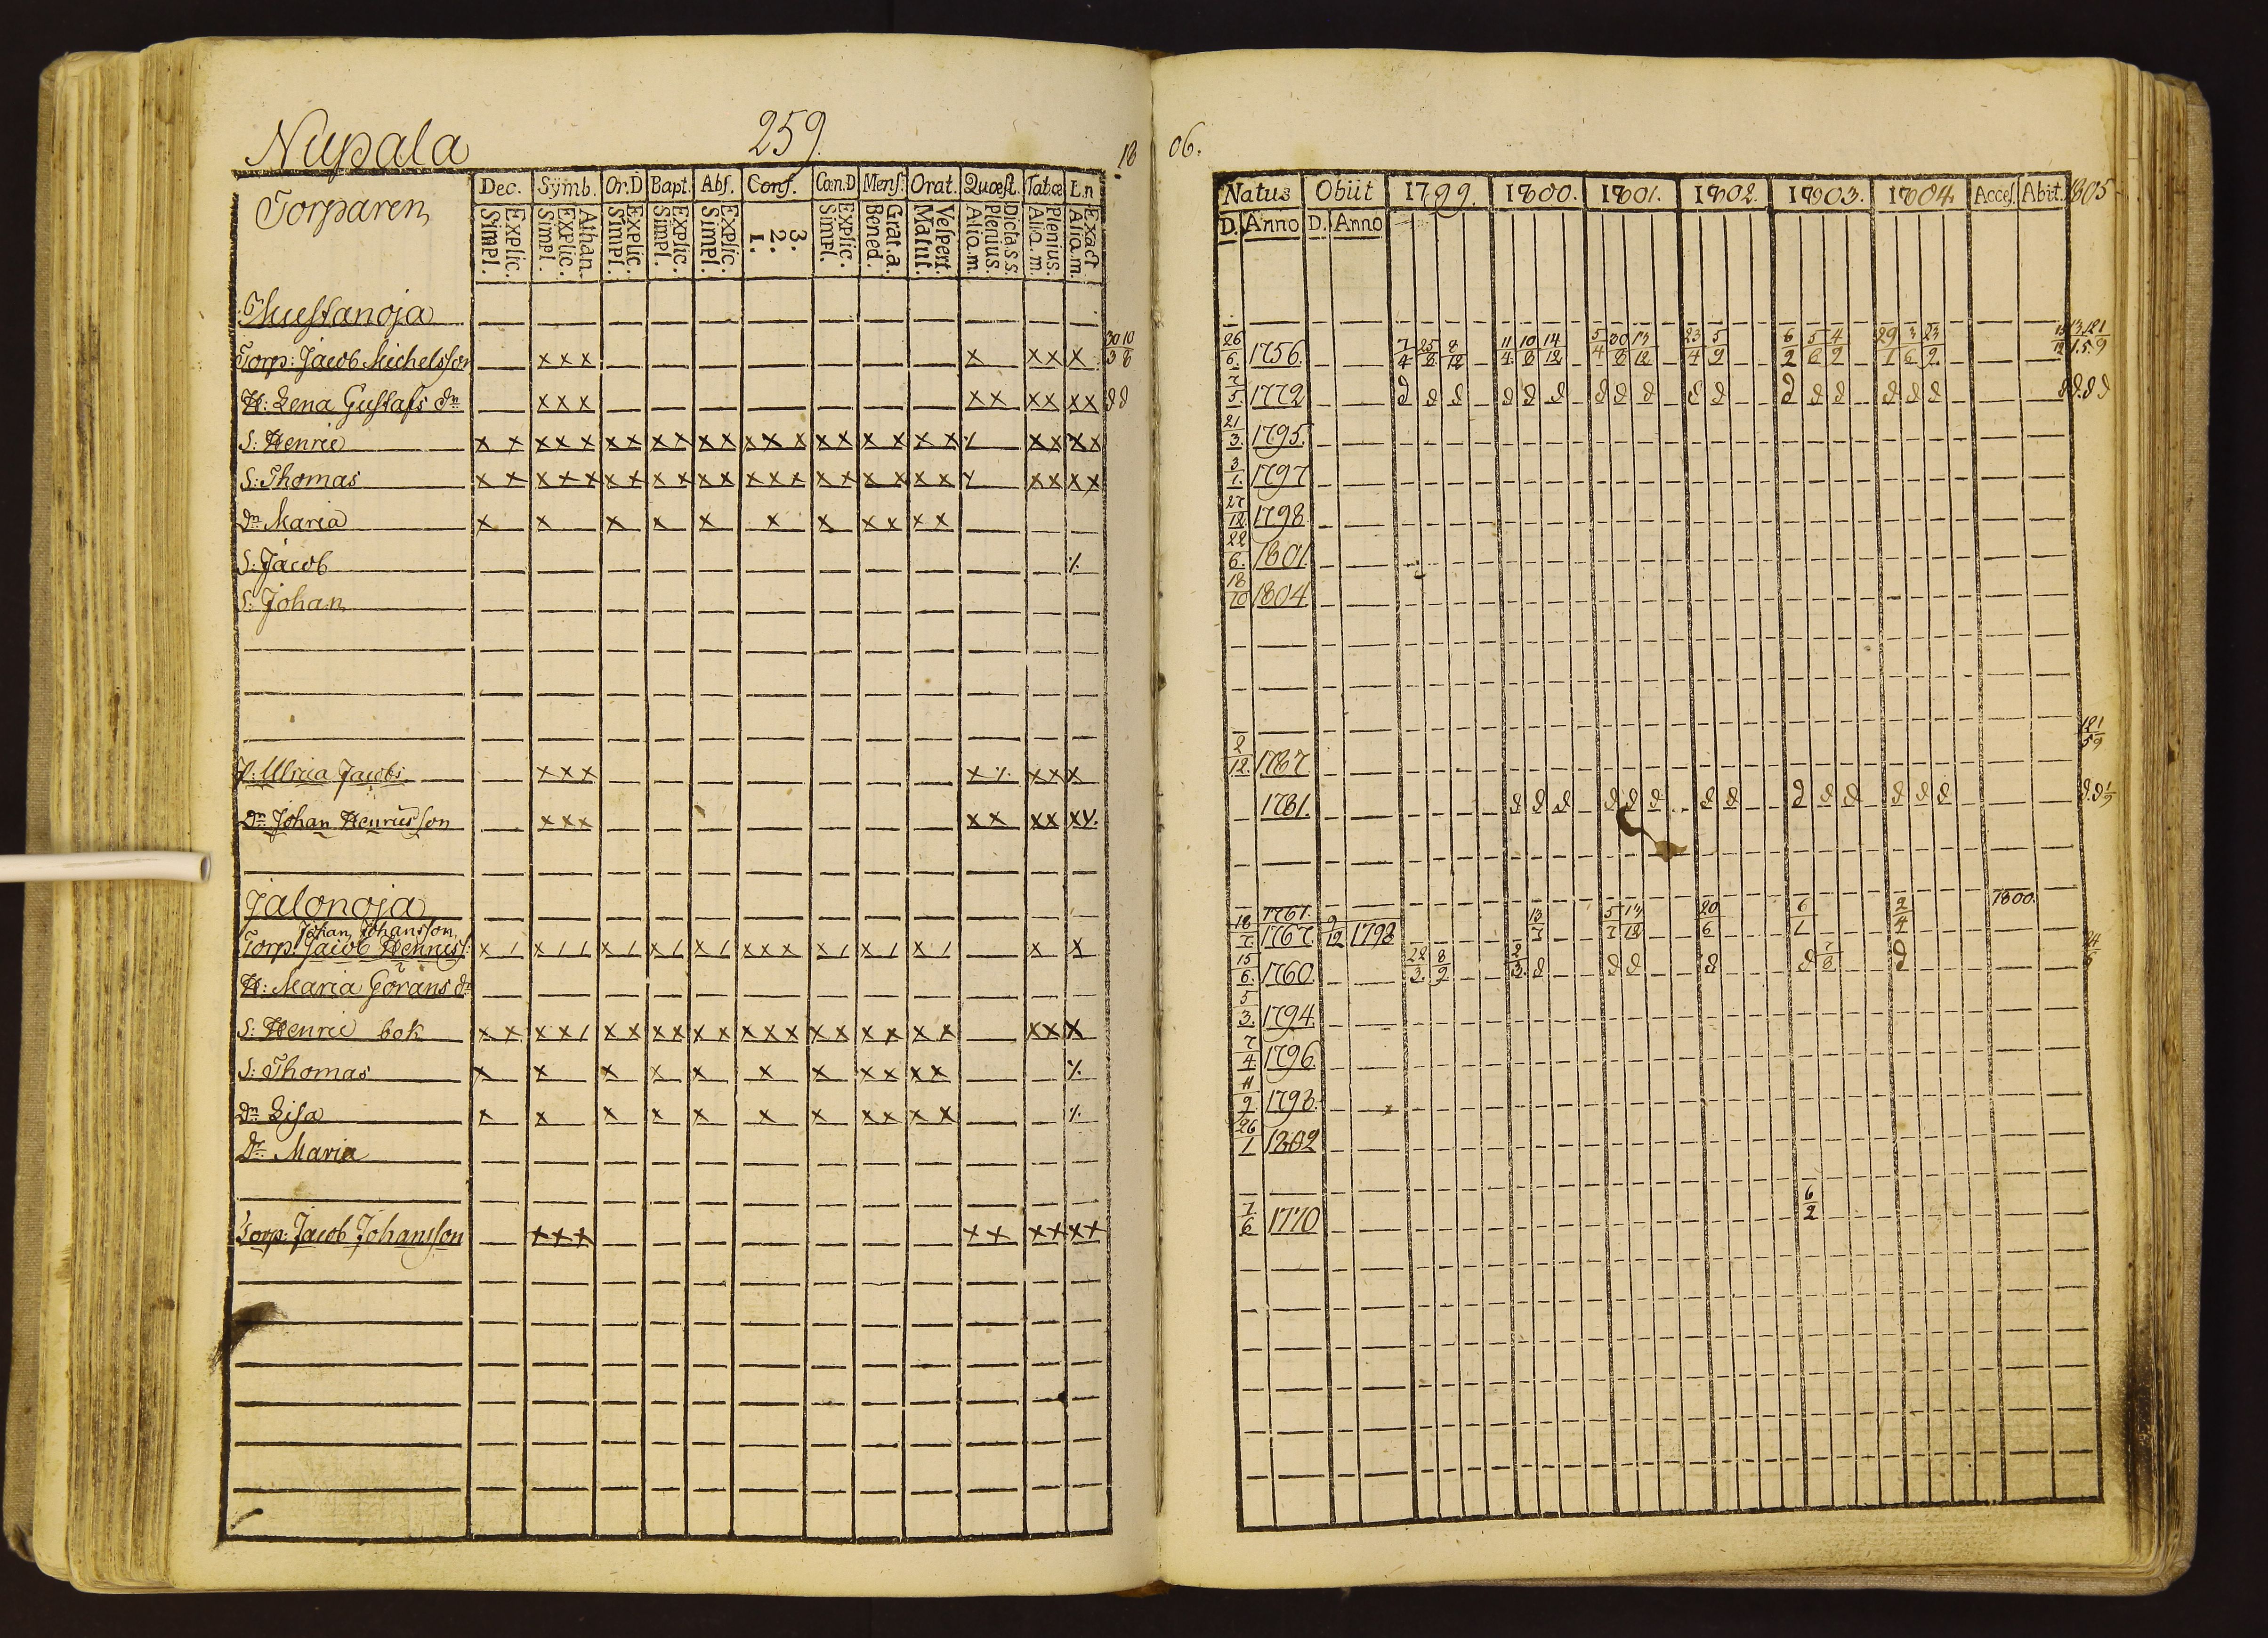 Nupala 259.
Torparen
Dec. Symb. Or.D Bapt. Abs. Conf. Cœn.D Mens. Orat. Quæst. Tab.œ L.n
Explic. Simpl. Athan. Explic. Simpl. Explic. Simpl. Explic. Simpl. Explic. Simpl. 3. 2. 1. Explic. Simpl. Grat.a. Bened. Vespert. Matut. Dicta.s.s. Plenius. Alio.m. Plenius. Alio.m. Exact Alio.m.
Mustanoja
Torp: Jacob Michelsson x x x x x x x 30/3 10/8
H: Lena Gustafs dr x x x x x x x x x d d
S: Henric x x x x x x x x x x x x x x x x x x x x x / x x x x
S: Thomas x x x x x x x x x x x x x x x x x x x x x / x x x x
Dr Maria x x x x x x x x x x x
S: Jacob ٪
S: Johan
P: Ulrica Jacobs x x x x ٪ x x x
Dr Johan Henricsson x x x x x x x x
Jalonoja
Johan Johansson
Torp: Jacob Henricss: x / x / / x / x / x / x x x x / x / x / x x
H: Maria Görans dr
S: Henric bok x x x x / x x x x x x x x x x x x x x x x x x
S: Thomas x x x x x x x x x x x ٪
Dr Lisa x x x x x x x x x x x ٪
Dr Maria
Torp: Jacob Johansson x x x x x x x x x
18 06.
Natus Obiit 1799. 1800. 1801. 1802. 1803. 1804. Acces. Abit. 1805
D. Anno D. Anno
26/6 1756. 7/4 25/8 8/12 11/4 10/8 14/12 5/4 30/8 13/12 23/4 5/9 6/2 5/6 4/9 29/1 3/6 23/9
7/5 1772 d d d d d d d d d d d d d d d d d d d d
21/3. 1795.
3/1. 1797
27/12. 1798
22/6. 1801.
18/10 1804
2/12. 1787
1781. d d d d d d d d d d d d d d
1761. 1800.
18/7. 1767. 9/12 1798 13/7 5/7 14/12 20/6 6/1 2/4
15/6. 1760. 22/3. 8/9. 2/3. d d d d d 7/8 d
5/3. 1794.
7/4. 1796.
11/9. 1798.
26/1 1802
7/6 1770 6/2